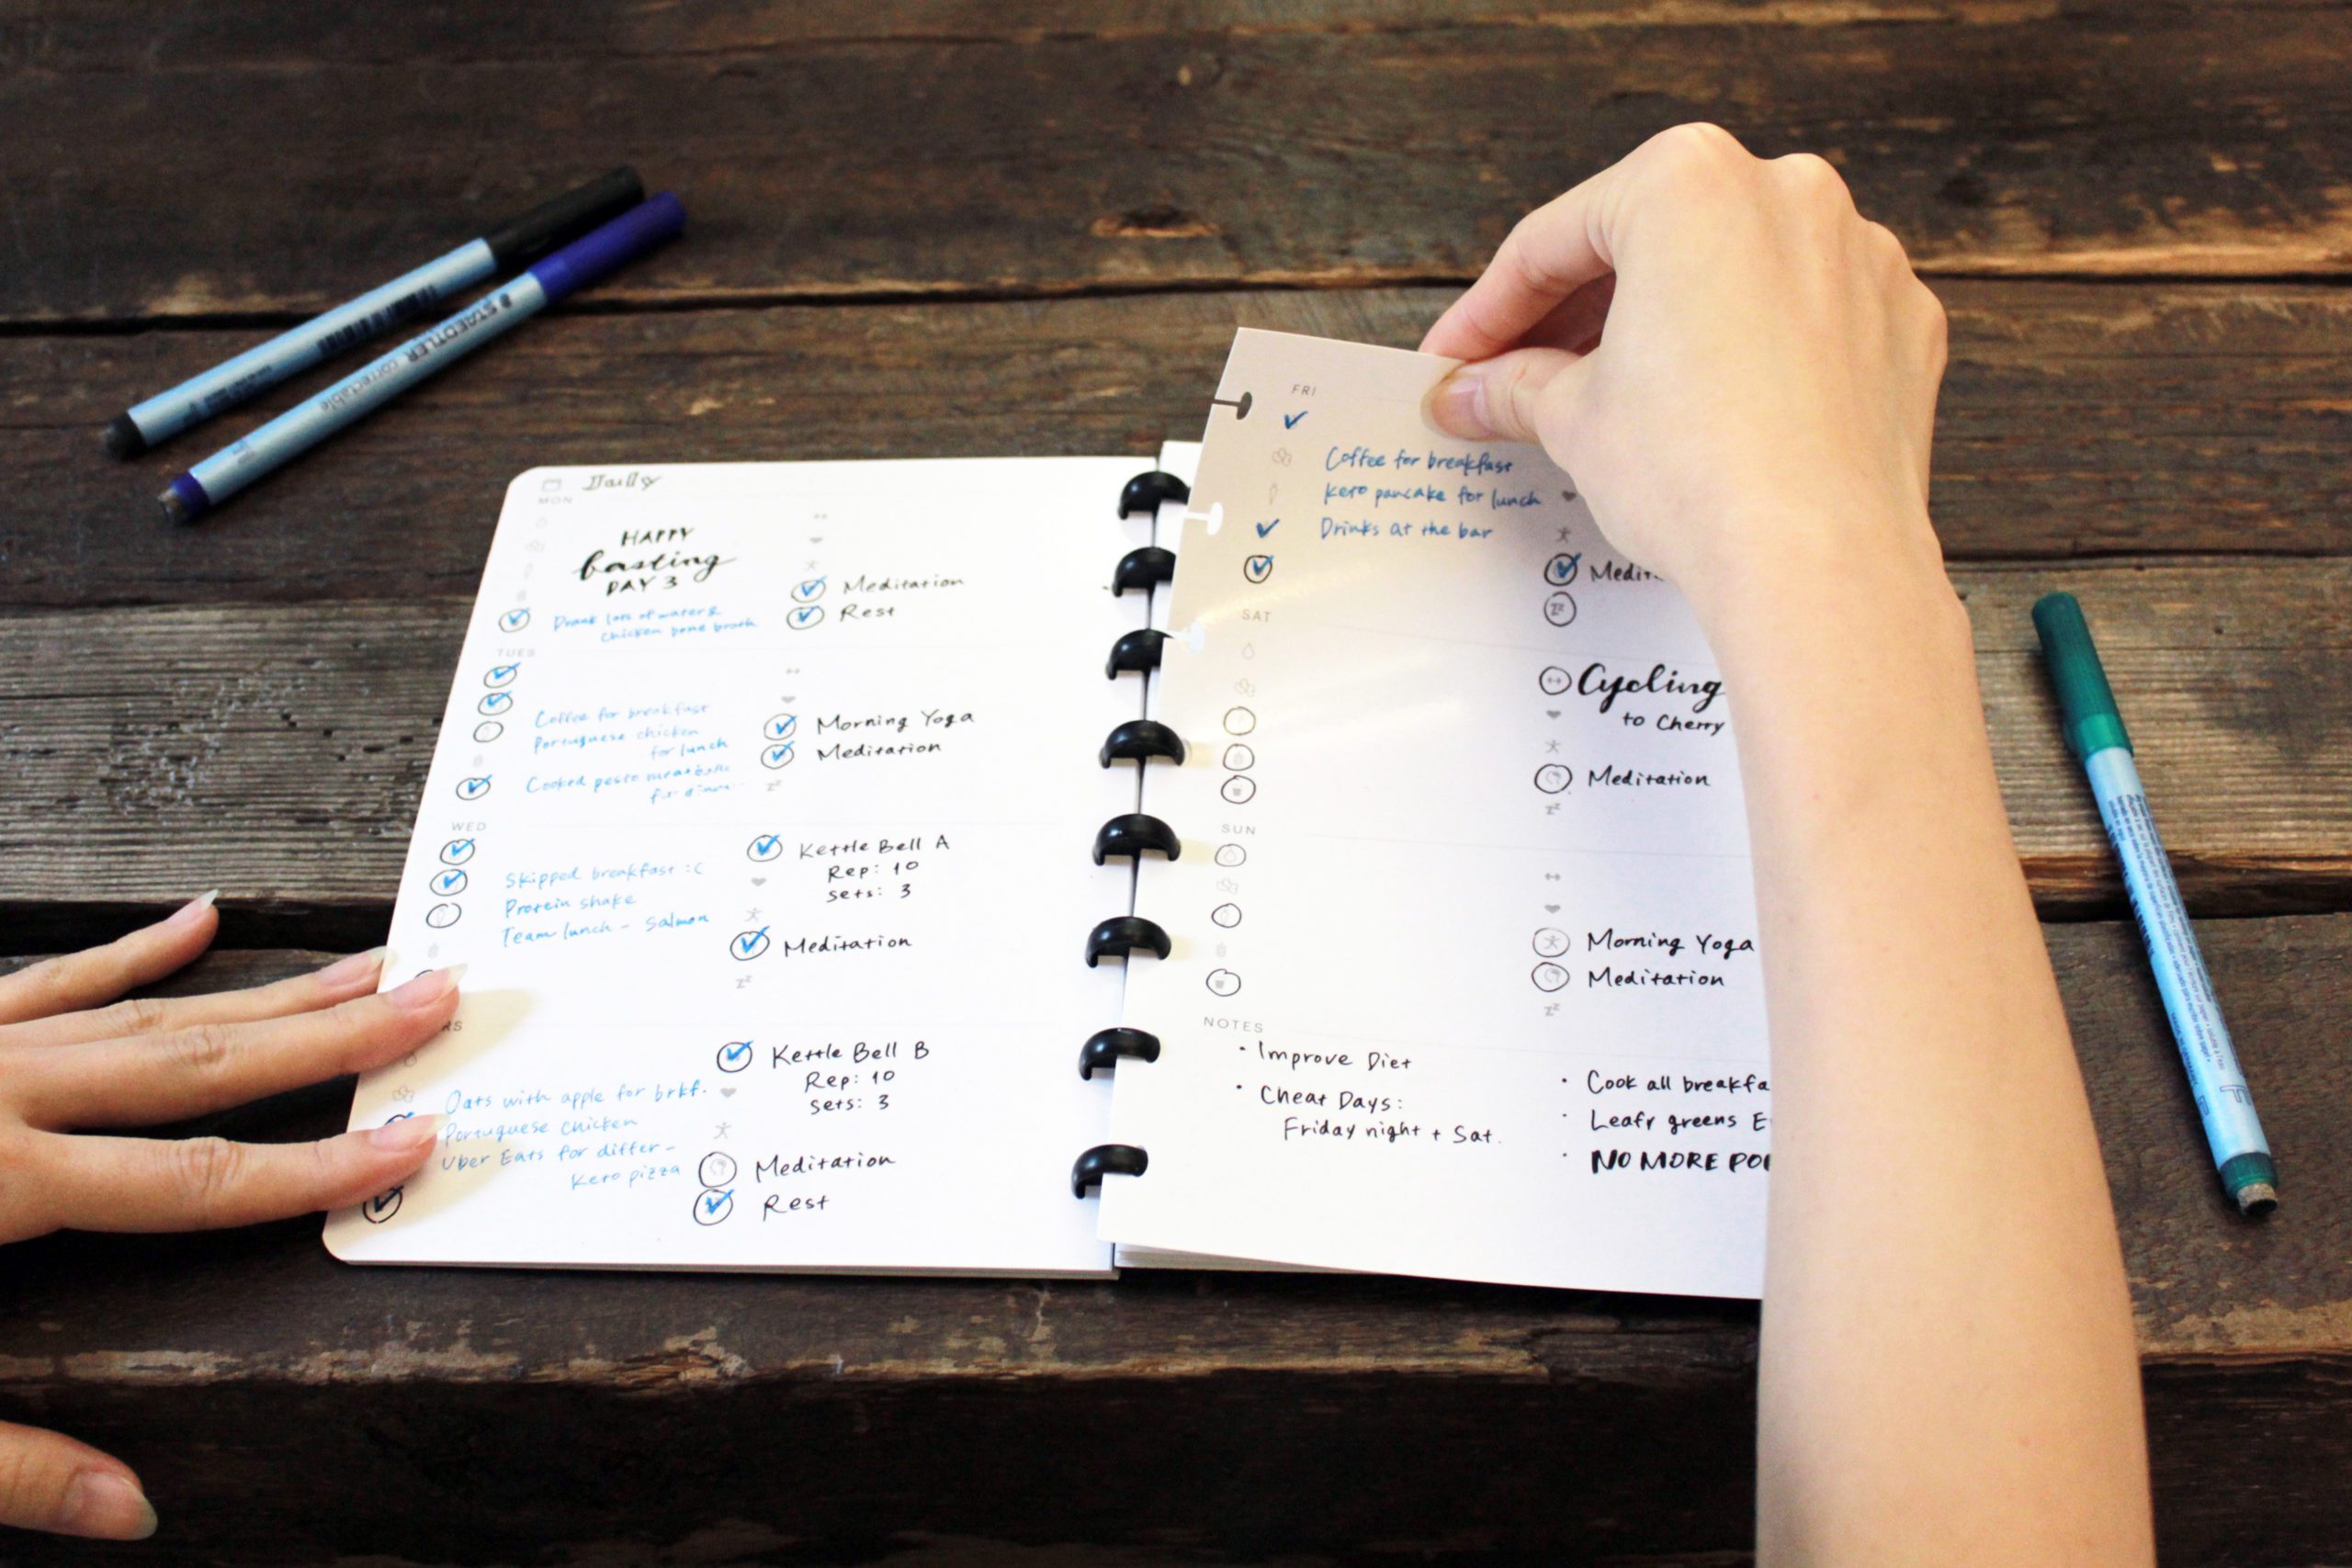 Daily
MON
HAPPY
fasting
DAY 3
Drank lots of water &
chicken bone broth
Meditation
Rest
TUES
Coffee for breakfast
Portuguese chicken
for lunch
Cooked pesto meatballs
for dinner
Morning Yoga
Meditation
WED
Skipped breakfast :C
Protein shake
Team lunch - Salmon
Kettle Bell A
Rep: 10
Sets: 3
Meditation
zz
RS
Oats with apple for brkf.
Portuguese chicken
Uber Eats for differ -
Keto pizza
Kettle Bell B
Rep: 10
Sets: 3
Meditation
Rest
FRI
Coffee for breakfast
Keto pancake for lunch
Drinks at the bar
Medit
zz
SAT
Cycling
to Cherry
Meditation
zz
SUN
Morning Yoga
Meditation
zz
NOTES
• Improve Diet
• Cheat Days:
Friday night + Sat.
• Cook all breakfa
• Leafy greens E
• NO MORE PO
STAEDTLER correctable
F